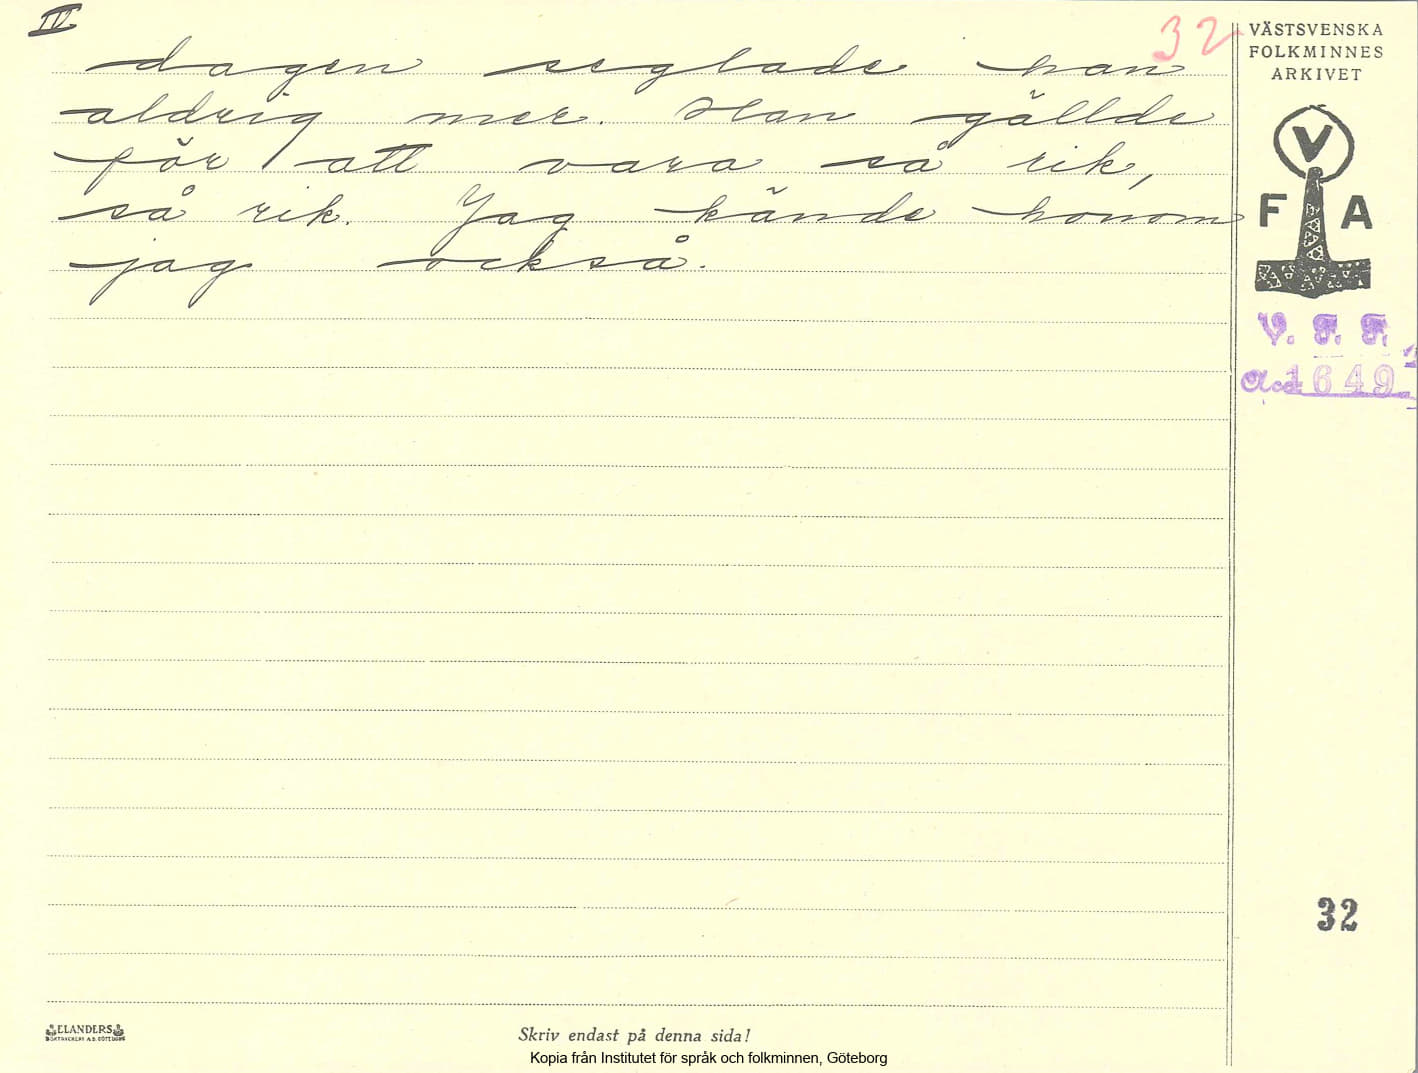 IV
32
dagen seglade han
aldrig mer. Han gällde
för att vara så rik,
så rik. Jag kände honom
jag också.
VÄSTSVENSKA
FOLKMINNES
ARKIVET
V
F A
V. F. F.
Acc 1649
32
ELANDERS
BOKTRYCKERI A.B. GÖTEBORG
Skriv endast på denna sida!
Kopia från Institutet för språk och folkminnen, Göteborg